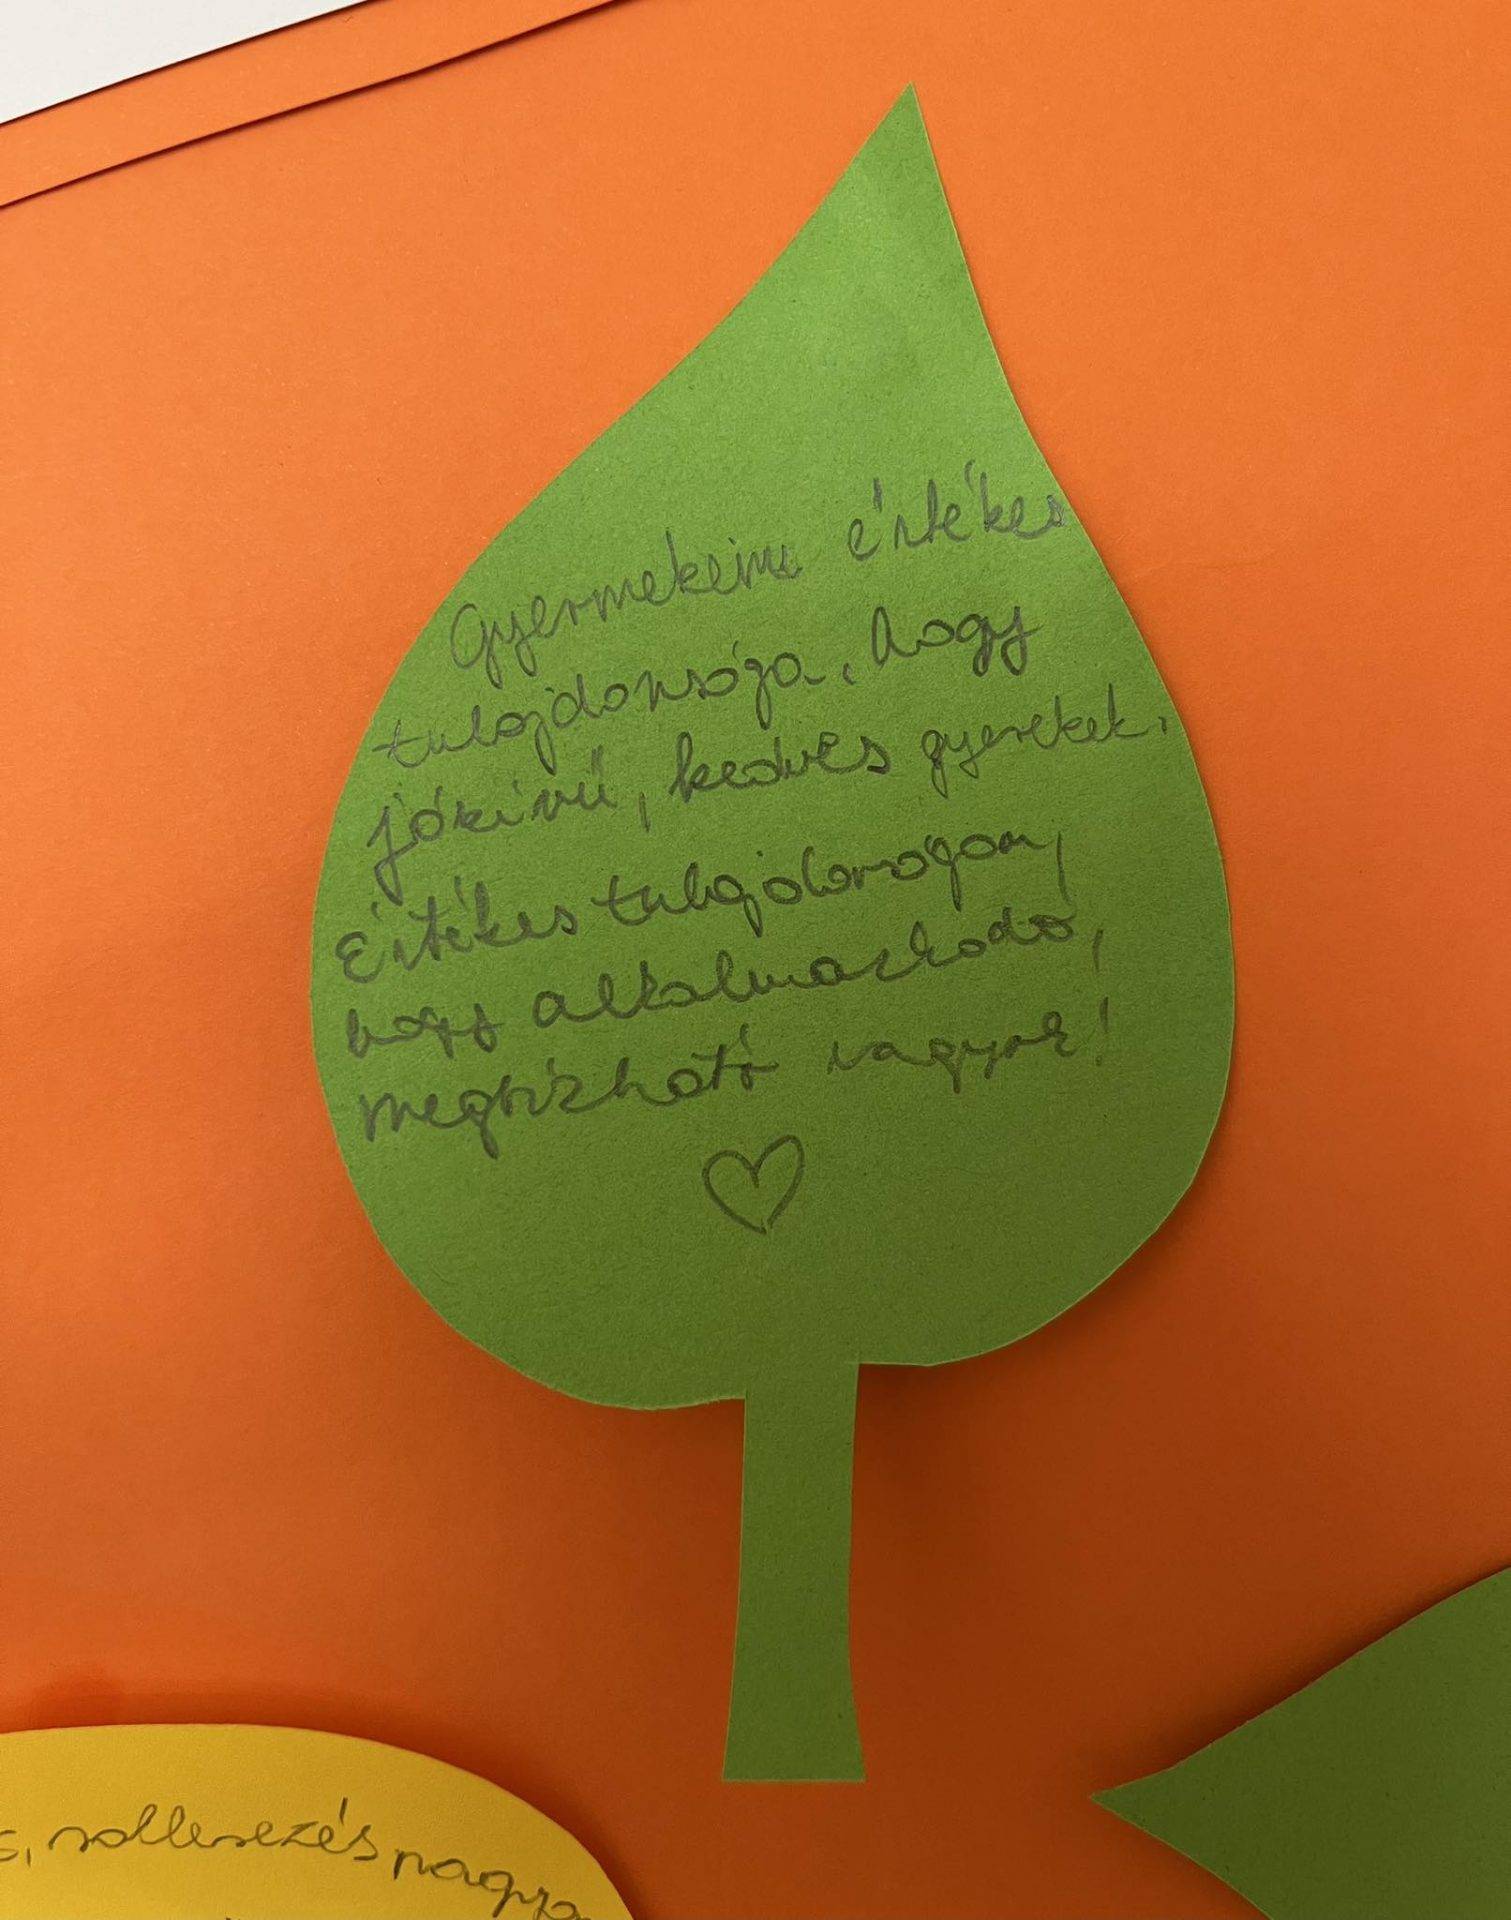 Gyermekeim értékes
tulajdonsága, hogy
jószívű, kedves gyerekek.
Értékes tulajdonságom,
hogy alkalmazkodó,
megbízható vagyok!
rollerezés nagyp